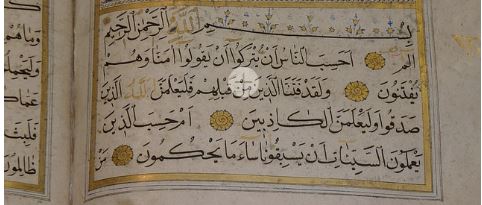 بسم الله الرحمن الرحيم
الم احسب الناس ان يتركوا ان يقولوا امنا وهم
يفتنون ولقد فتنا الذين من قبلهم فليعلمن الله الذين
صدقوا وليعلمن الكاذبين ام حسب الذين
يعملون السيئات ان يسبقونا ساء ما يحكمون من